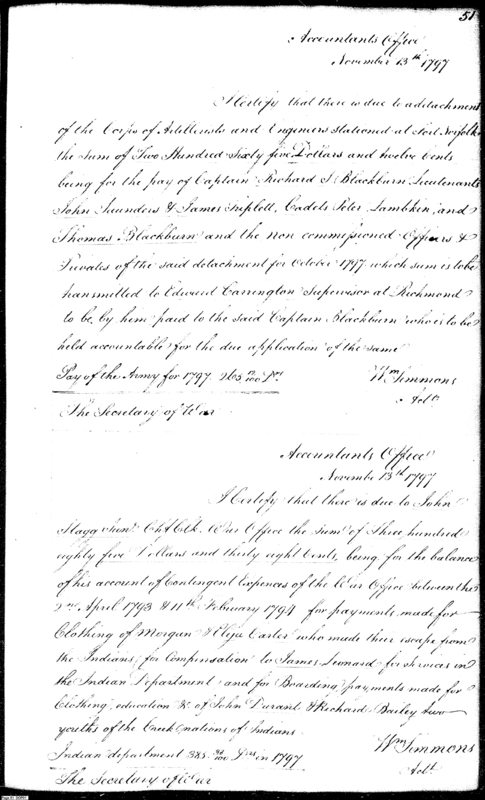 51
Accountants Office
November 13th 1797
I Certify that there is due to a detachment
of the Corps of Artillerists and Engineers stationed at Fort Norfolk
the sum of Two Hundred Sixty five Dollars and twelve Cents
being for the pay of Captain Richard S Blackburn, Lieutenants
John Saunders & James Triplett, Cadets Peter Lambkin, and
Thomas Blackburn and the non commissioned Officers &
Privates of the said detachment for October 1797 which sum is to be
transmitted to Edward Carrington Supervisor at Richmond
to be by him paid to the said Captain Blackburn who is to be
held accountable for the due application of the same
Pay of the Army for 1797 265 12/100 Drs
Wm Simmons
Actt
The Secretary of War
Accountants Office
November 13th 1797
I Certify that there is due to John
Stagg Junr Chf Clk. War Office the sum of Three hundred
eighty five Dollars and thirty eight Cents, being for the balance
of his account of Contingent Expences of the War Office between the
2nd April 1793 & 11th February 1794 for payments made for
Clothing of Morgan & Eliju Carter who made their escape from
the Indians, for Compensation to James Leonard for services in
the Indian Department and for Boarding, payments made for
Clothing, education &c of John Durant & Richard Bailey two
youths of the Creek nations of Indians
Indian department 385 38/100 Drs in 1797
Wm Simmons
Actt
The Secretary of War